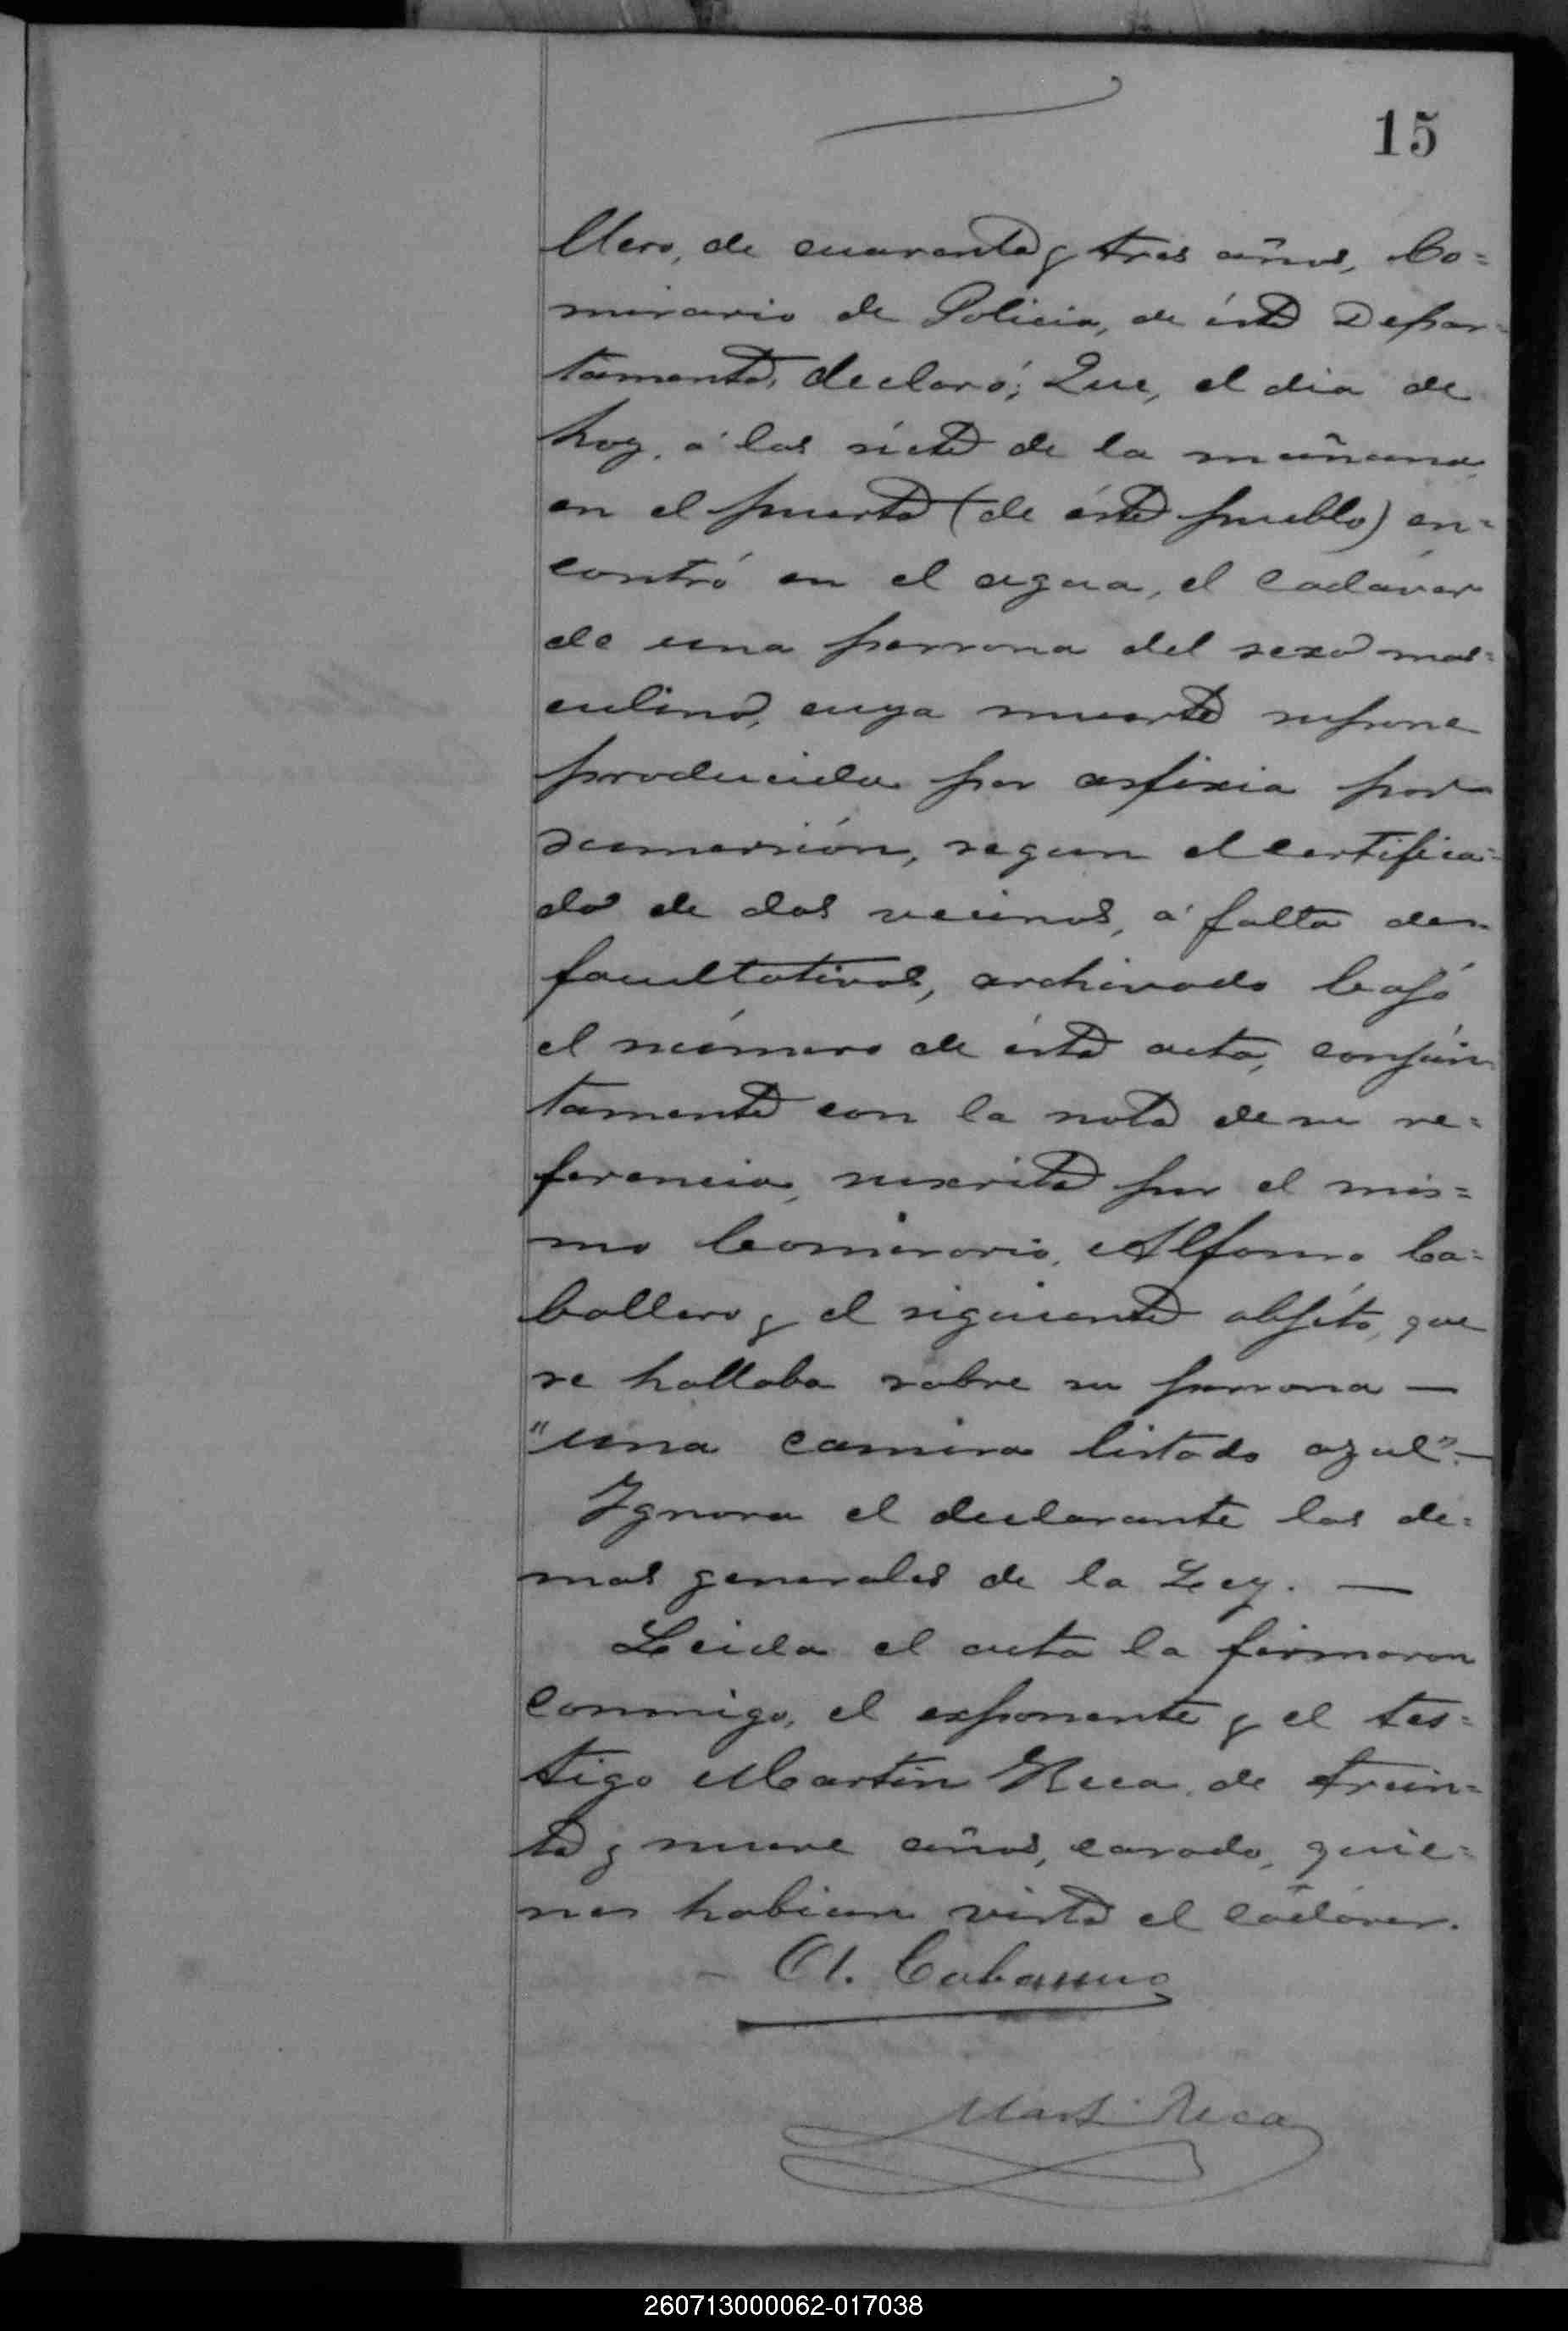 15
llero, de cuarenta y tres años, Co=
misario de Policia, de éste Depar=
tamento, declaró; Que, el dia de
hoy, á las siete de la mañana
en el puerto (de éste pueblo) en=
contró en el agua, el cadáver
de una persona del sexo mas=
culino, cuya muerte supone
producida por asfixia por
sumersión, segun el certifica=
do de dos vecinos, á falta de
facultativos, archivado bajó
el número de ésta acta, conjún
tamente con la nota de su re=
ferencia, suscrita por el mis=
mo Comisario, Alfonso Ca=
ballero y el siguiente objéto, que
se hallaba sobre su persona —
"una camisa listado azul". —
Ignora el declarante las de=
mas generales de la Ley. —
Leida el acta la firmaron
conmigo, el exponente y el tes=
tigo Martin Reca, de trein=
ta y nueve años, casado, quie=
nes habian visto el cadáver.
Martin Reca
260713000062-017038